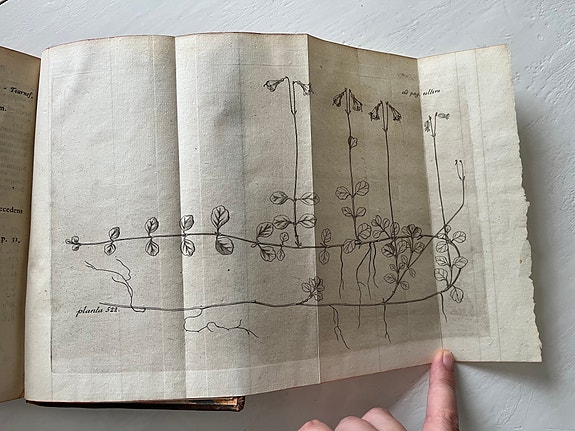 - Tournef.
m.
ecedens
p. 11,
ad pag. ultim
planta 522.